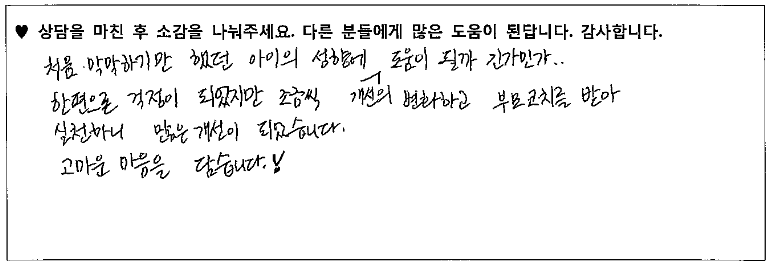 ♥ 상담을 마친 후 소감을 나눠주세요. 다른 분들에게 많은 도움이 된답니다. 감사합니다.
처음 막막하기만 했던 아이의 성향에 도움이 될까 긴가민가..
한편으론 걱정이 되었지만 조금씩 개선의 변화하고 부모코치를 받아
실천하니 많은 개선이 되었습니다.
고마운 마음을 담습니다.